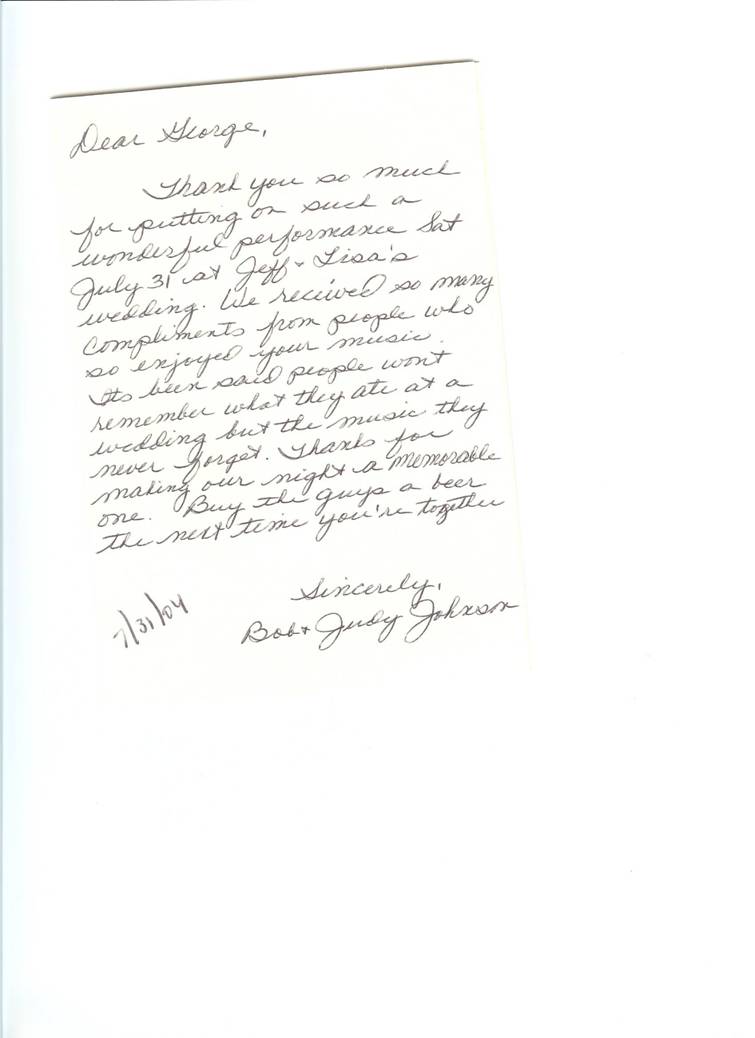 Dear George,
Thank you so much
for putting on such a
wonderful performance Sat
July 31 at Jeff + Lisa's
wedding. We received so many
compliments from people who
so enjoyed your music.
Its been said people won't
remember what they ate at a
wedding but the music they
never forget. Thanks for
making our night a memorable
one. Buy the guys a beer
the next time you're together
Sincerely,
7/31/04
Bob + Judy Johnson